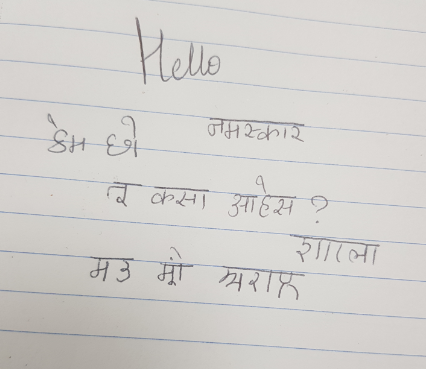 Hello
नमस्कार
કેમ છો
तू कसा आहेस ?
शाला
मउ